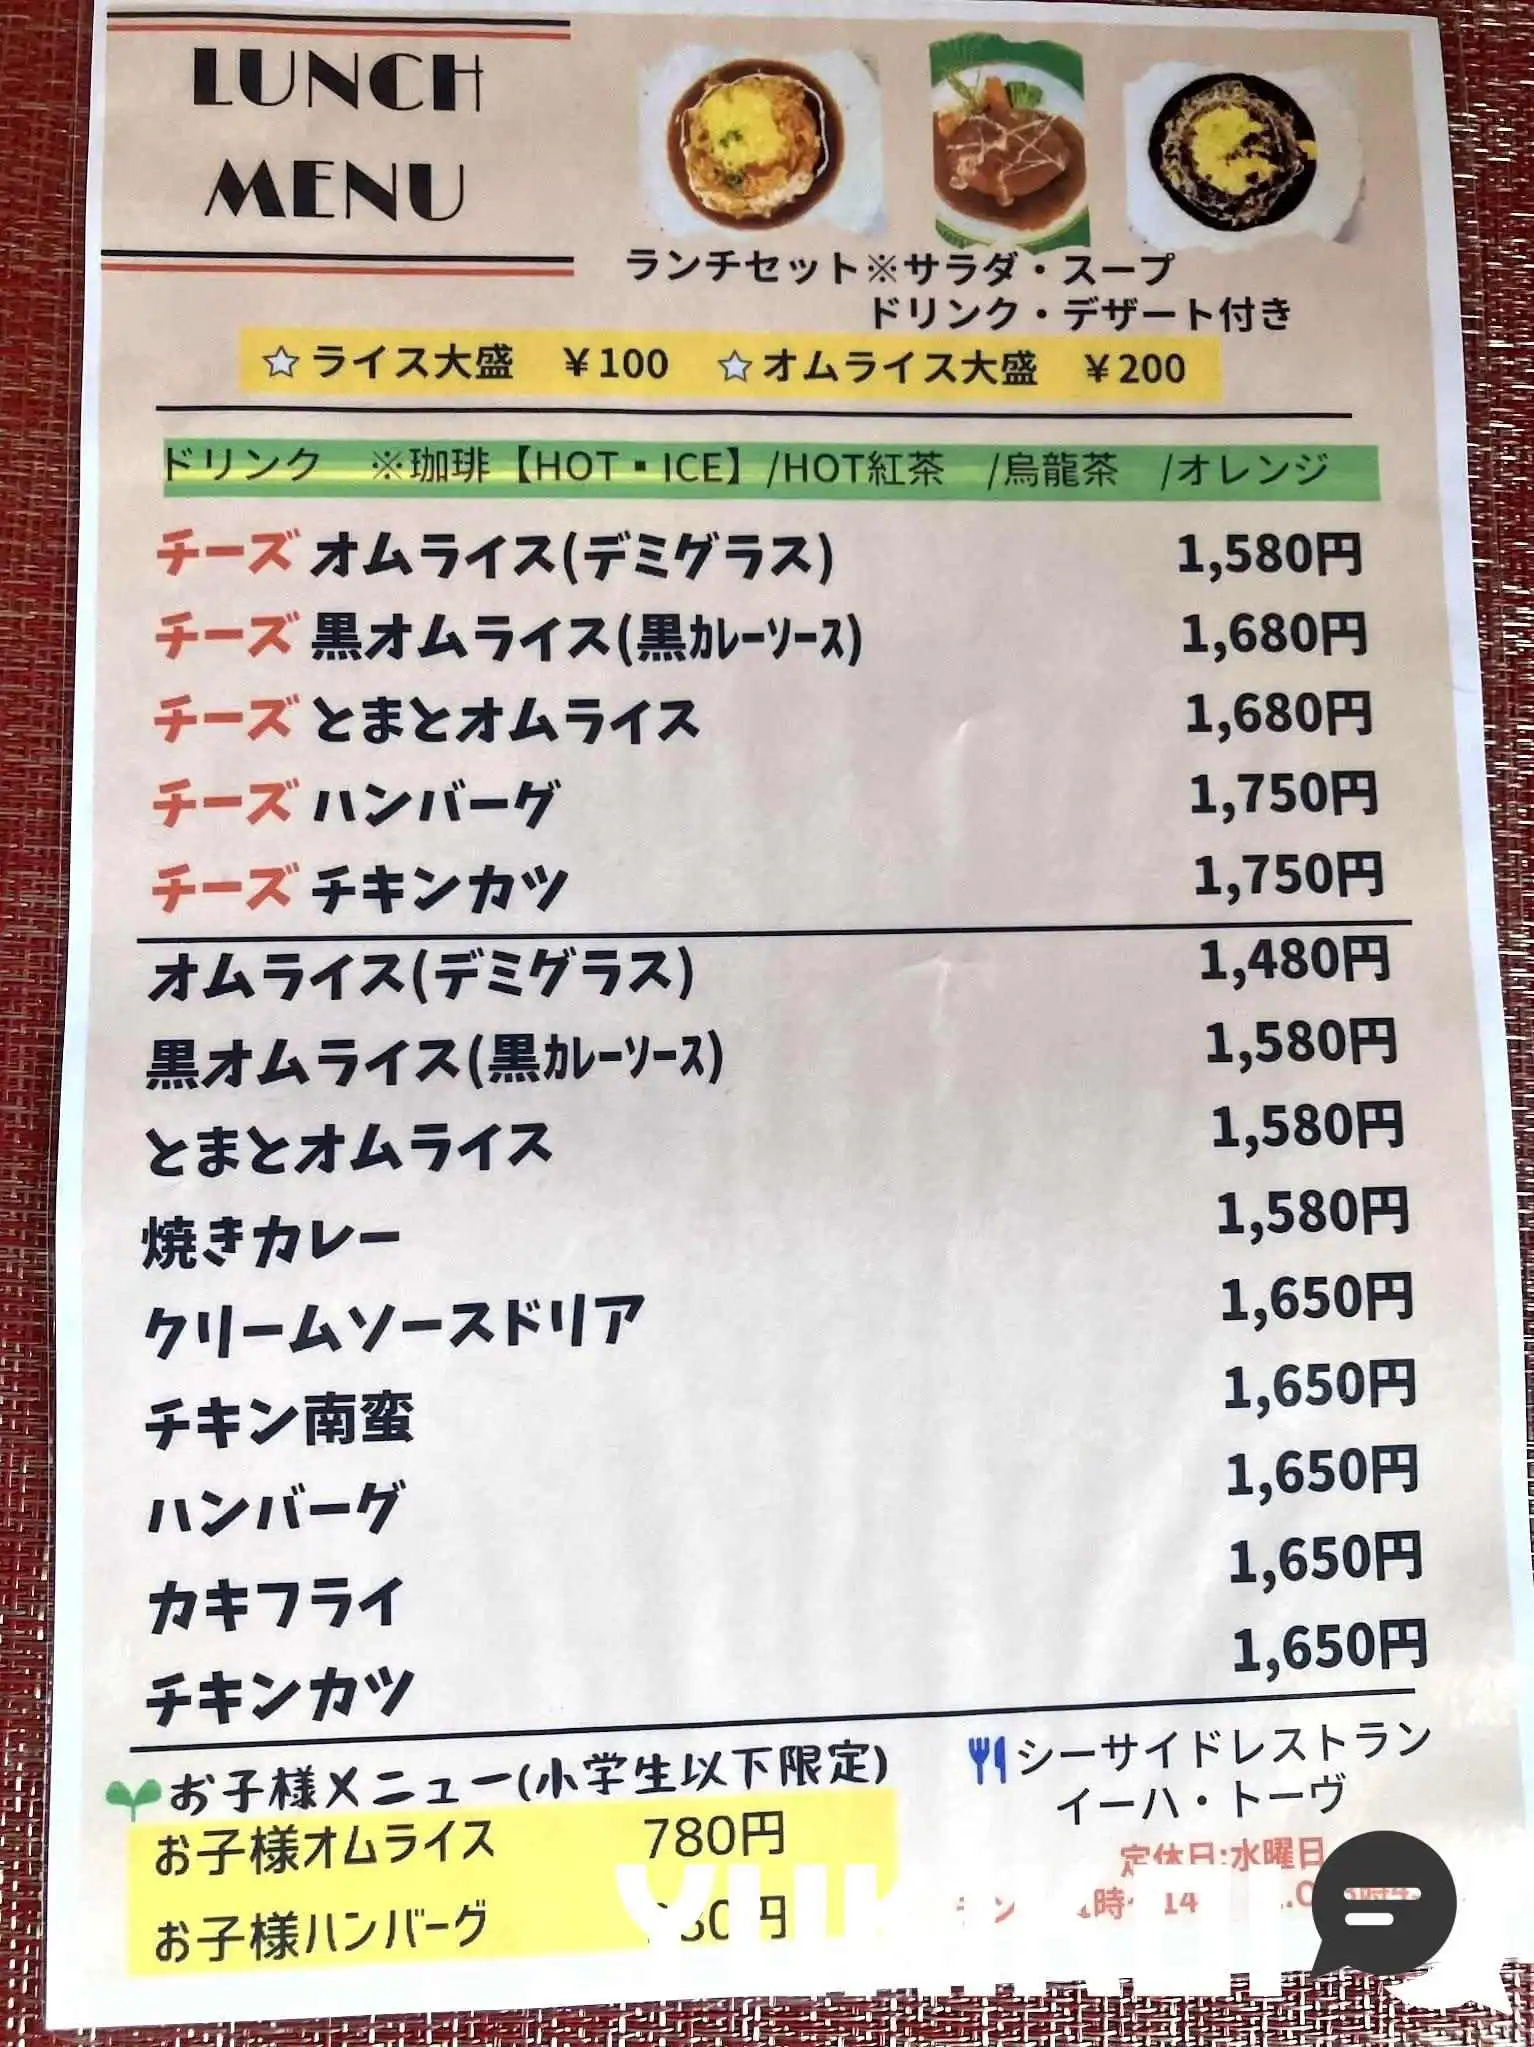 LUNCH
MENU
ランチセット※サラダ・スープ
ドリンク・デザート付き
☆ライス大盛 ￥100 ☆オムライス大盛 ￥200
ドリンク ※珈琲【HOT・ICE】/HOT紅茶 /烏龍茶 /オレンジ
チーズ オムライス(デミグラス) 1,580円
チーズ 黒オムライス(黒ｶﾚｰソース) 1,680円
チーズ とまとオムライス 1,680円
チーズ ハンバーグ 1,750円
チーズ チキンカツ 1,750円
オムライス(デミグラス) 1,480円
黒オムライス(黒ｶﾚｰソース) 1,580円
とまとオムライス 1,580円
焼きカレー 1,580円
クリームソースドリア 1,650円
チキン南蛮 1,650円
ハンバーグ 1,650円
カキフライ 1,650円
チキンカツ 1,650円
お子様メニュー(小学生以下限定)
お子様オムライス 780円
お子様ハンバーグ
シーサイドレストラン
イーハ・トーヴ
定休日:水曜日